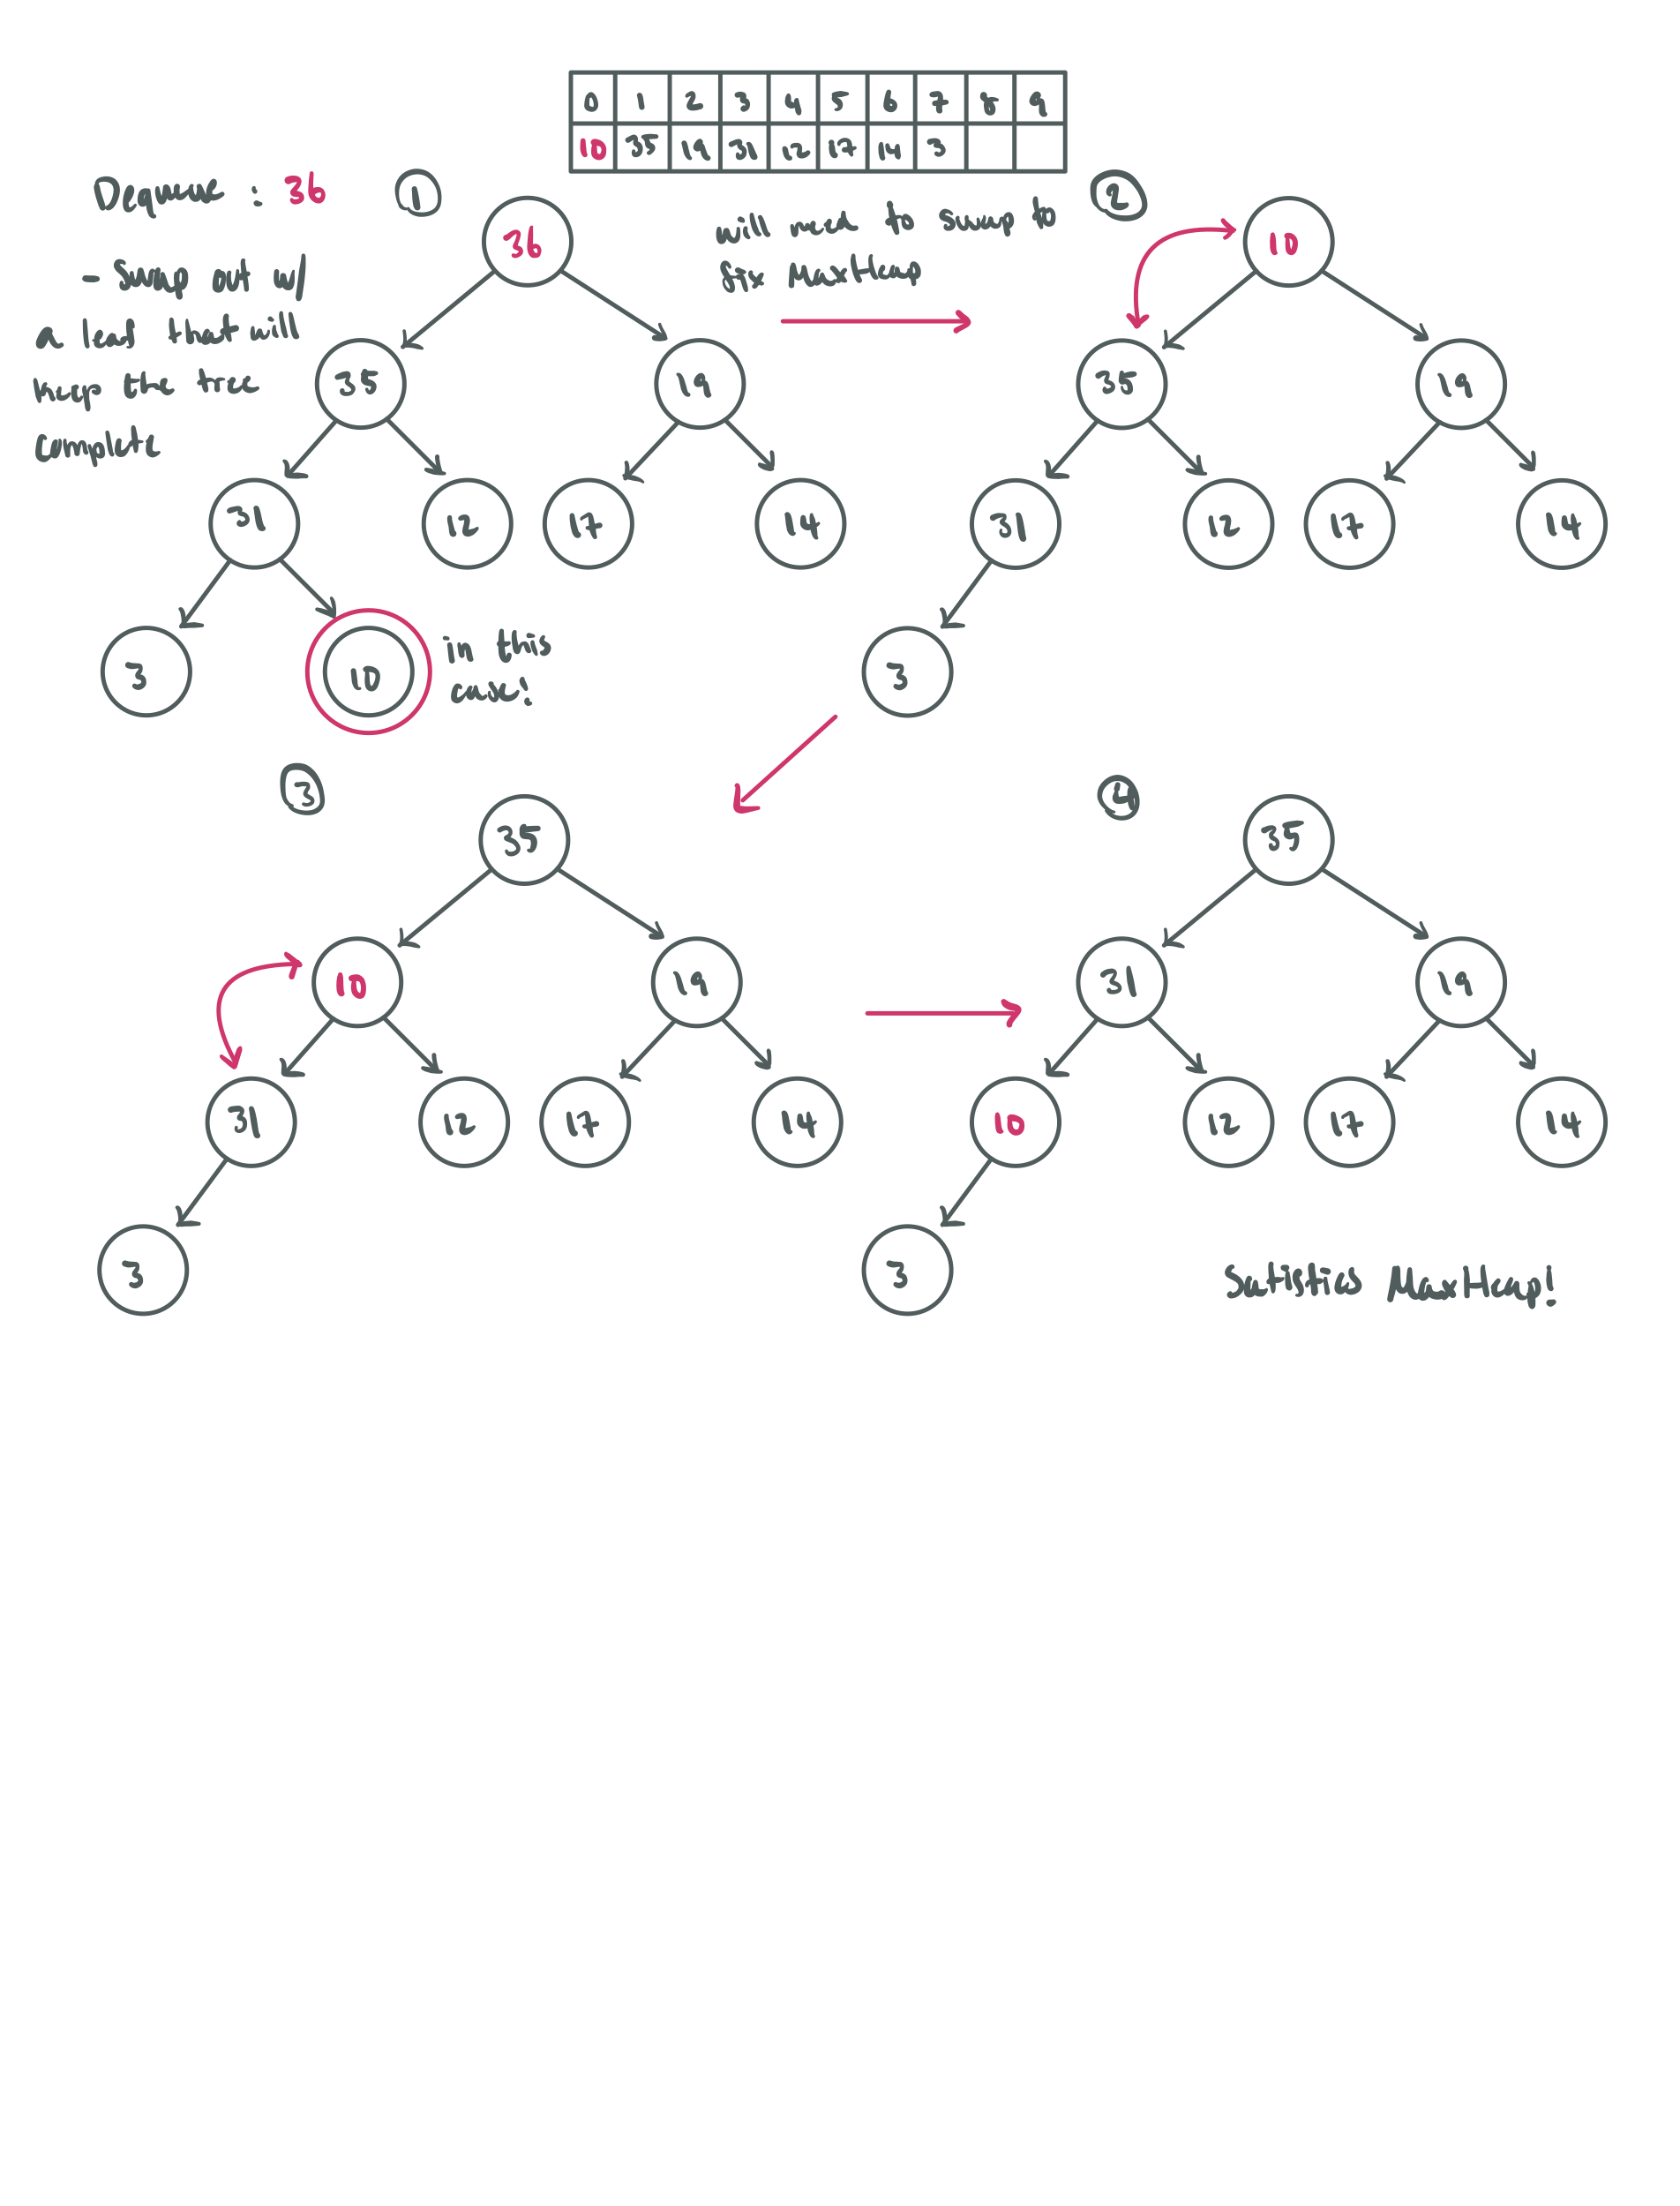 0 1 2 3 4 5 6 7 8 9
10 35 19 31 12 17 14 3
Dequeue : 36
- Swap out w/
a leaf that will
keep the tree
complete
1
36
35 19
31 12 17 14
3 10
in this
case!
will need to swap to
fix MaxHeap
2
10
35 19
31 12 17 14
3
3
35
10 19
31 12 17 14
3
4
35
31 19
10 12 17 14
3
Satistics MaxHeap!